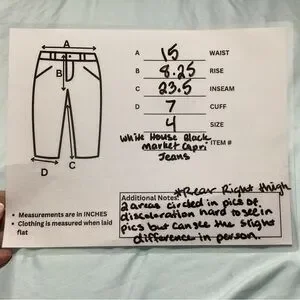 A
A 15 WAIST
B
B 8.25 RISE
C 23.5 INSEAM
D 7 CUFF
4 SIZE
White House Black
Market Capri ITEM #
Jeans
D
C
*Rear Right thigh
Additional Notes:
2 areas circled in pics of
discoloration hard to see in
pics but can see the slight
difference in person.
• Measurements are in INCHES
• Clothing is measured when laid
flat